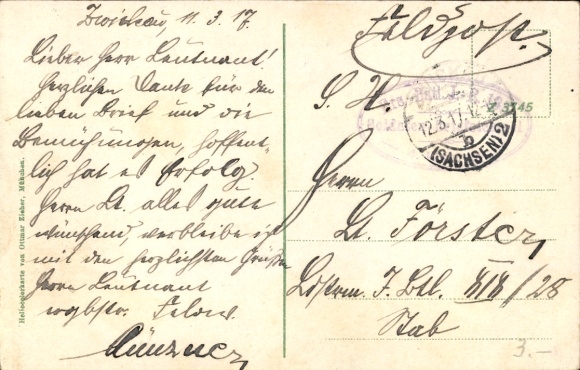 Zwickau, 11.3.17.
Lieber Herr Leutnant!
Herzlichen Dank für den
lieben Brief und die
Bemühungen, hoffent-
lich hat es Erfolg.
Herrn Lt. alles gute
wünschend, verbleibe ich
mit den herzlichsten Grüßen
Herrn Leutnant
Feldpost.
S. H.
№ 3745
12.3.17.
(SACHSEN) 2
b
Herrn
Lt. Förster,
Ldstrm. J. Btl. XIX/28
Stab
3.-
Heliocolorkarte von Ottmar Zieher, München.